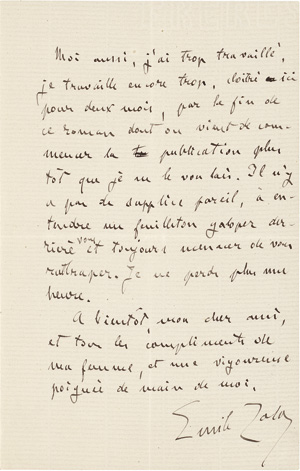 Moi aussi, j'ai trop travaillé,
je travaille encore trop, cloîtré ici
pour deux mois, par la fin de
ce roman dont on vient de com-
mencer la publication plus
tôt que je ne le voulais. Il n'y
a pas de supplice pareil, à en-
tendre un feuilleton galoper der-
rière vous et toujours menacer de vous
rattraper. Je ne perds plus une
heure.
A bientôt, mon cher ami,
et tous les compliments de
ma femme, et une vigoureuse
poignée de main de moi.
Emile Zola